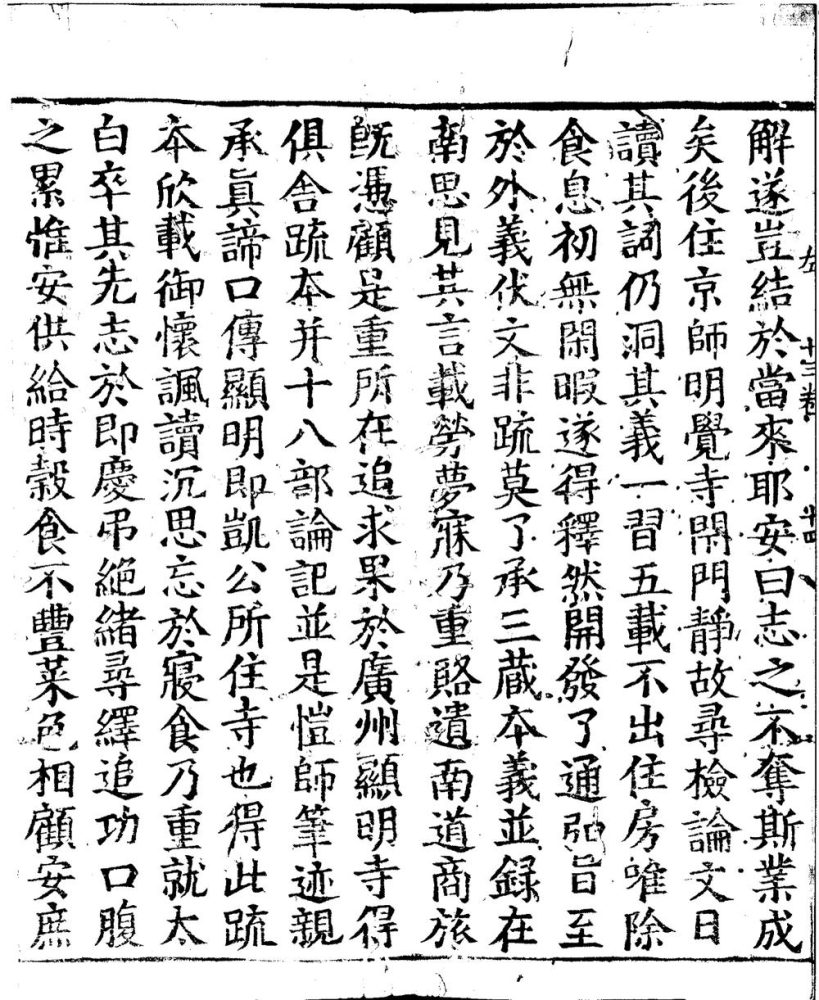 解遂豈結於當來耶安曰志之不奪斯業成
左 十三卷 十四
矣後住京師明覺寺閑門靜故尋檢論文日
讀其詞仍洞其義一習五載不出住房唯除
食息初無閑暇遂得釋然開發了通弘旨至
於外義伏文非疏莫了承三藏夲義並録在
南思見其言載勞夢寐乃重賂遺南道商旅
旣憑顧是重所在追求果於廣州顯明寺得
俱舍疏夲并十八部論記並是愷師筆迹親
承眞諦口傳顯明即凱公所住寺也得此疏
夲欣載御懷諷讀沉思忘於寢食乃重就太
白卒其先志於即慶弔絕緒尋繹追功口腹
之累惟安供給時穀食不豐菜色相顧安庶